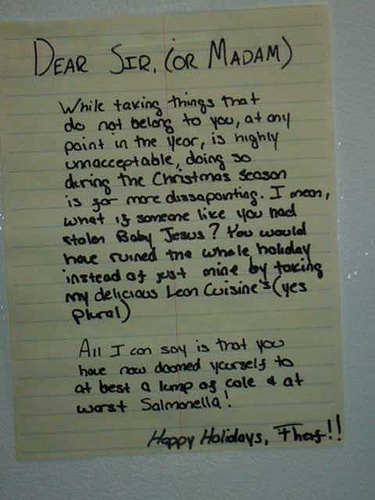 DEAR SIR, (OR MADAM)
While taking things that
do not belong to you, at any
point in the year, is highly
unnacceptable, doing so
during the Christmas season
is far more dissapointing. I mean,
what if someone like you had
stolen Baby Jesus? You would
have ruined the whole holiday
instead of just mine by taking
my delicious Lean Cuisine's (yes
plural)
All I can say is that you
have now doomed yourself to
at best a lump of cole & at
worst Salmonella!
Happy Holidays, Theif!!